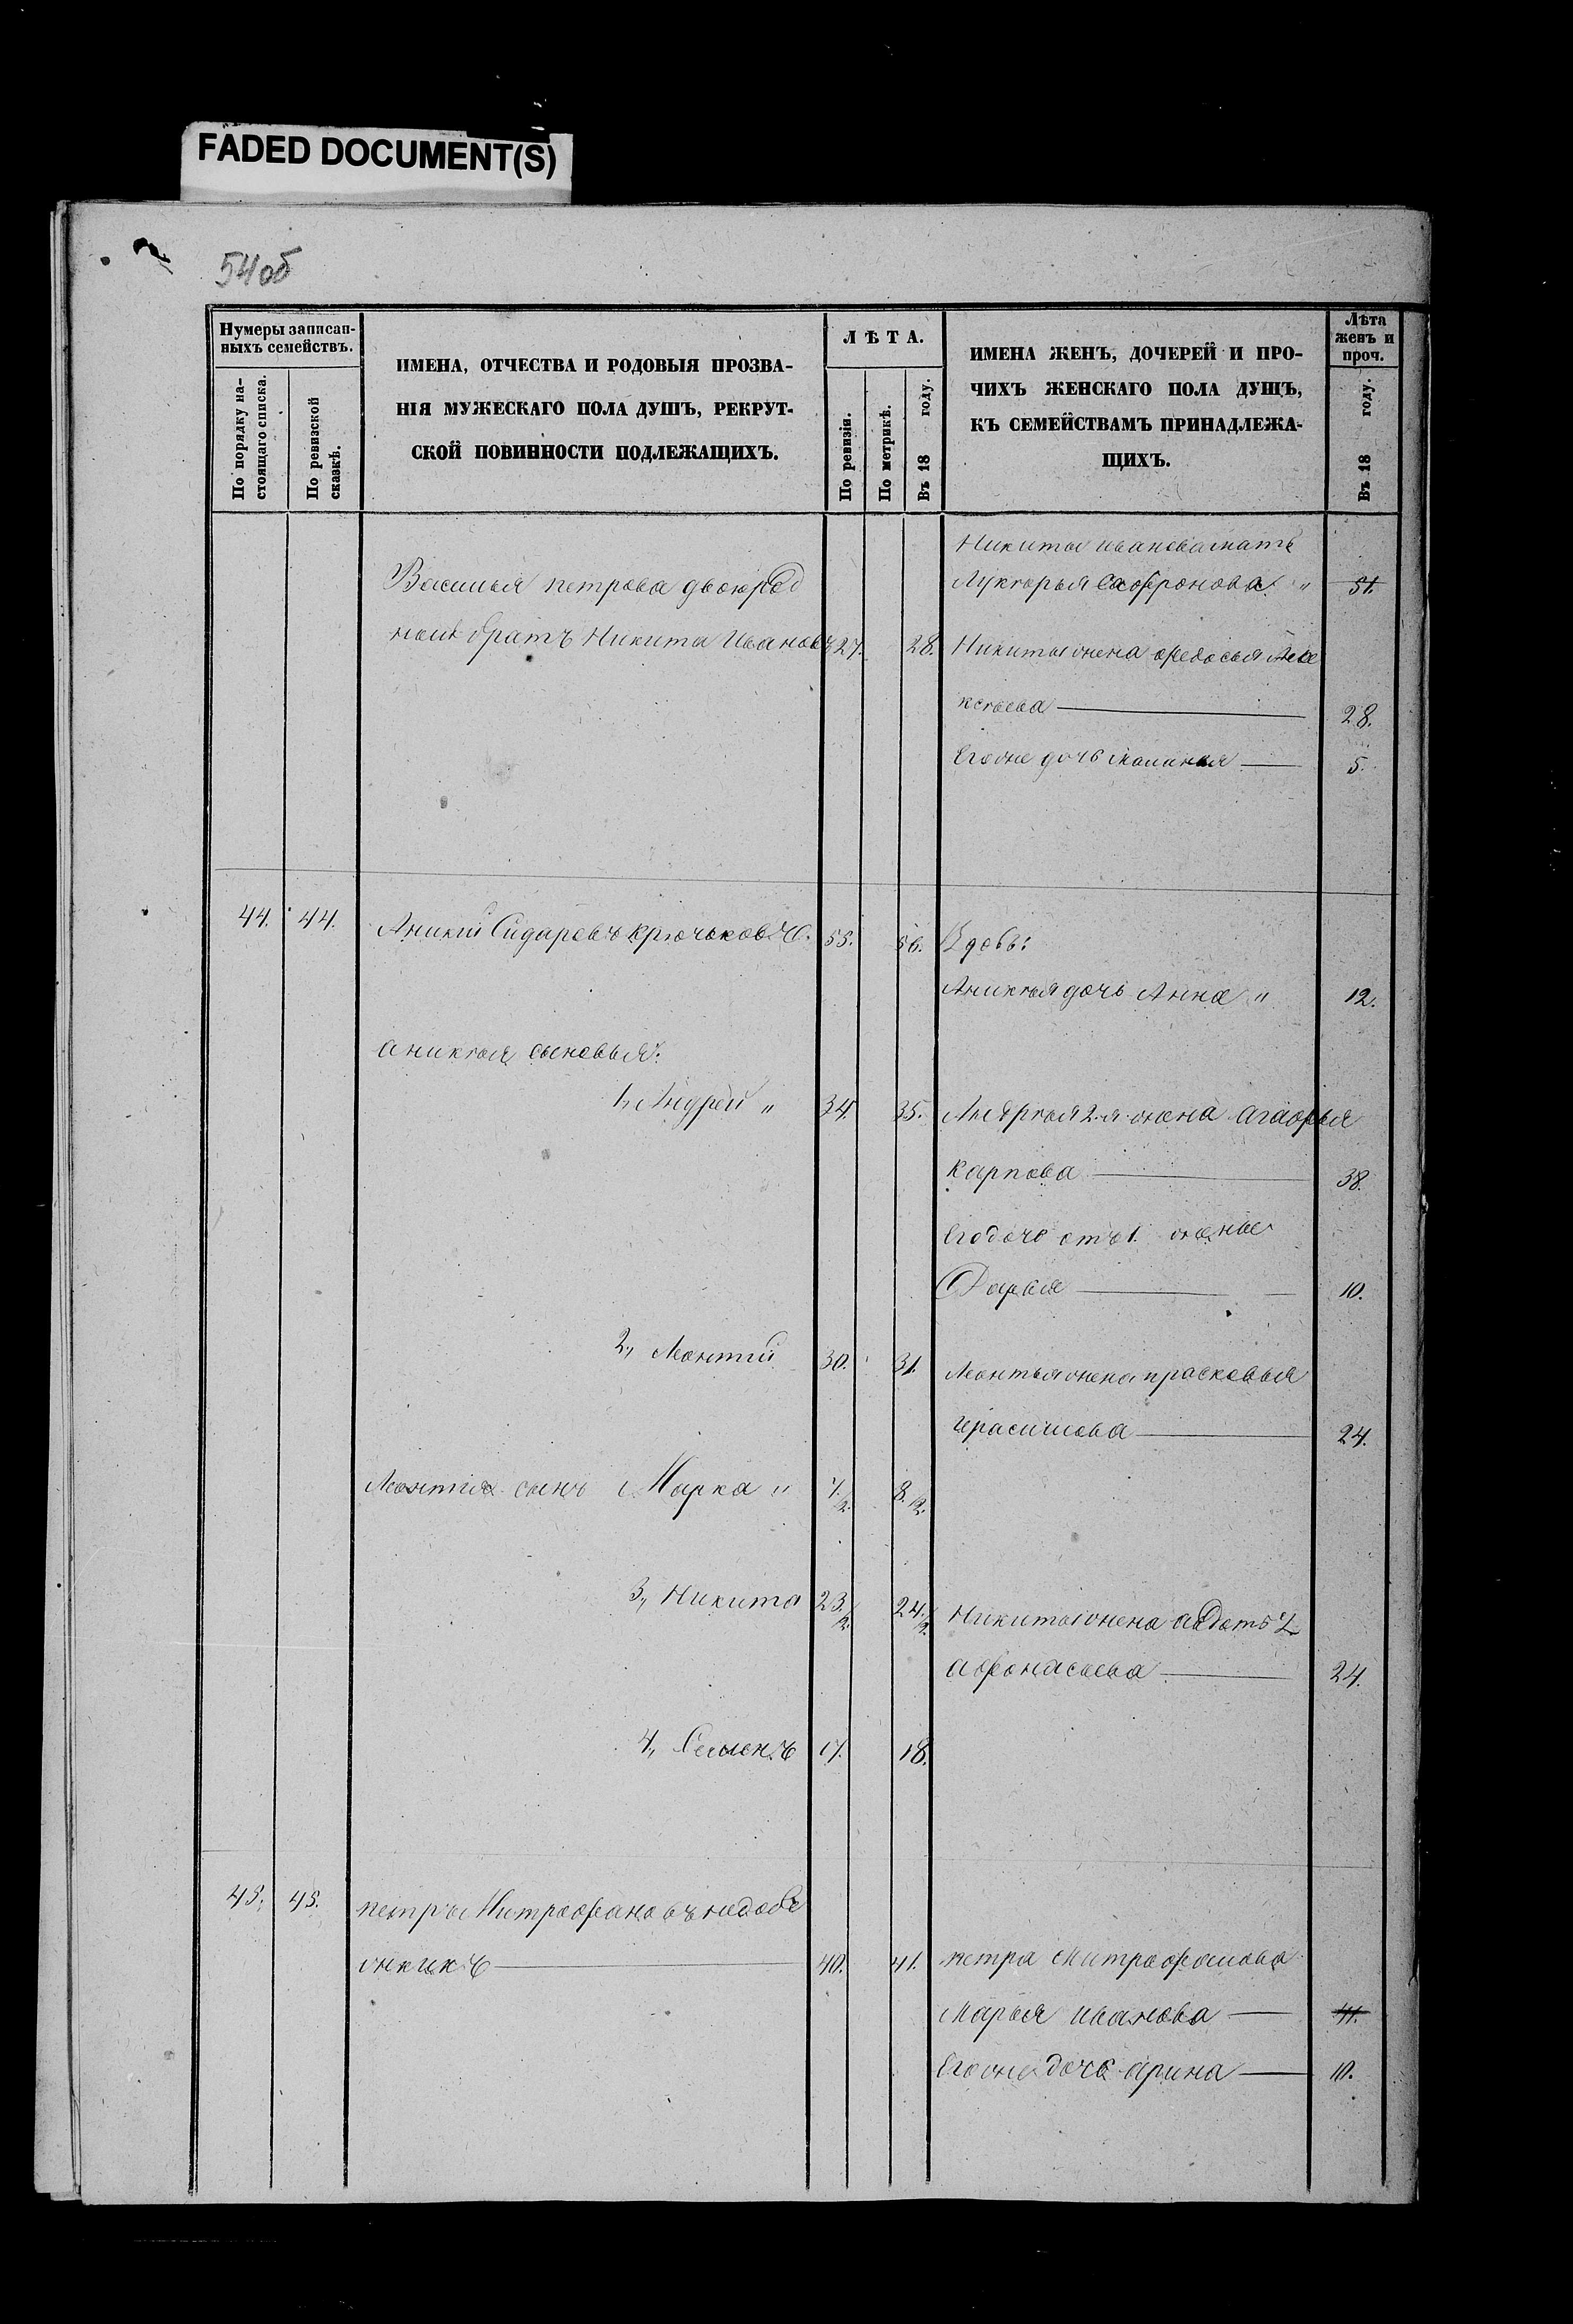 FADED DOCUMENT(S)
54об
Нумеры записан-
ныхъ семействъ.
По порядку на-
стоящаго списка.
По ревизской
сказкѣ.
ИМЕНА, ОТЧЕСТВА И РОДОВЫЯ ПРОЗВА-
НІЯ МУЖЕСКАГО ПОЛА ДУШЪ, РЕКРУТ-
СКОЙ ПОВИННОСТИ ПОДЛЕЖАЩИХЪ.
ЛѢТА.
По ревизіи.
По метрикѣ.
Въ 18 году.
ИМЕНА ЖЕНЪ, ДОЧЕРЕЙ И ПРО-
ЧИХЪ ЖЕНСКАГО ПОЛА ДУШЪ,
КЪ СЕМЕЙСТВАМЪ ПРИНАДЛЕЖА-
ЩИХЪ.
Лѣта
женъ и
проч.
Въ 18 году.
Никиты иванова мать
Василья петрова двоюрод
Лукгорья Сафронова " 51.
ной братъ Никита Ивановъ 27. 28. Никиты жена федосья Але
ксгъева 28.
Его же дочь 5.
44. 44. Аникий Сидаровъ Крючьковъ. 55. 56. Вдовъ:
Аникгъя дочь Анна " 12.
аникгъя сыновья:
1, Андрей " 34. 35. Андргъя 2.я жена агафья
Карпова 38.
Его дочь отъ 1. жены
Дарья 10.
2, Леонтий 30. 31. Леонтья жена прасковья
Герасимова 24.
Леонтия сынъ Марка " 7.½. 8.½.
3, Никита 23.½. 24.½. Никиты жена авдотья
афонасьева 24.
4, Семенъ 17. 18.
45. 45. петръ Митрофановъ недовѣ
жкинъ 40. 41. петра Митрофанова
Марья иванова 41.
Его же дочь арина 10.